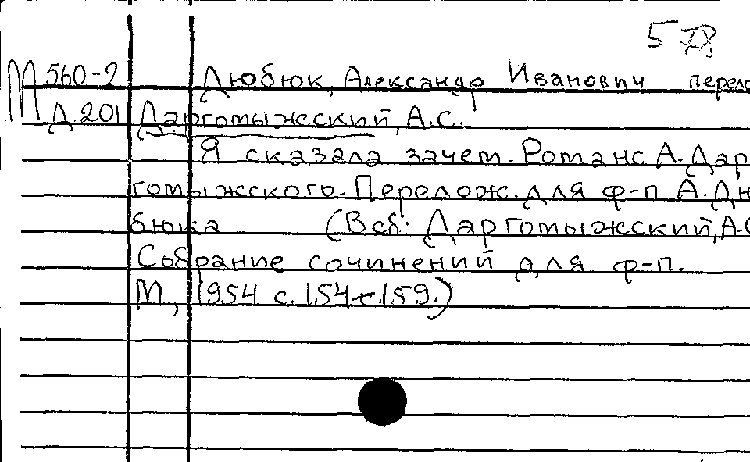 5 Д.
М 560-2 Дюбюк, Александр Иванович перело
Д.201 Даргомыжский, А.С.
Я сказала зачем. Романс А. Дар
гомыжского. Перелож. для ф-п А. Дю
бюка (В сб: Даргомыжский, А.С
Собрание сочинений для ф-п.
М., 1954 с. 154-с.159.)